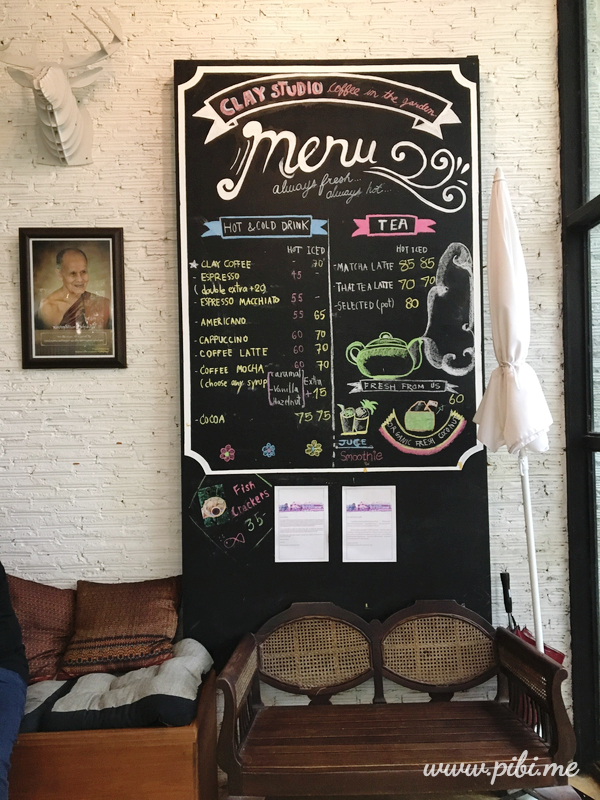 CLAY STUDIO Coffee in the garden
Menu
always fresh...
always hot...
HOT & COLD DRINK
HOT ICED
CLAY COFFEE 70
- ESPRESSO 45 -
(double extra +20
- ESPRESSO MACCHIATO 55 -
- AMERICANO 55 65
- CAPPUCCINO 60 70
- COFFEE LATTE 60 70
- COFFEE MOCHA 60 70
(choose any syrup
caramal
Vanilla
Hazelnut
Extra
+15
- COCOA 75 75
TEA
HOT ICED
- MATCHA LATTE 85 85
- THAI TEA LATTE 70 70
- SELECTED (pot) 80
FRESH FROM US
60
ORGANIC FRESH COCONUT
JUICE
Smoothie
Fish
Crackers
35-
www.pibi.me